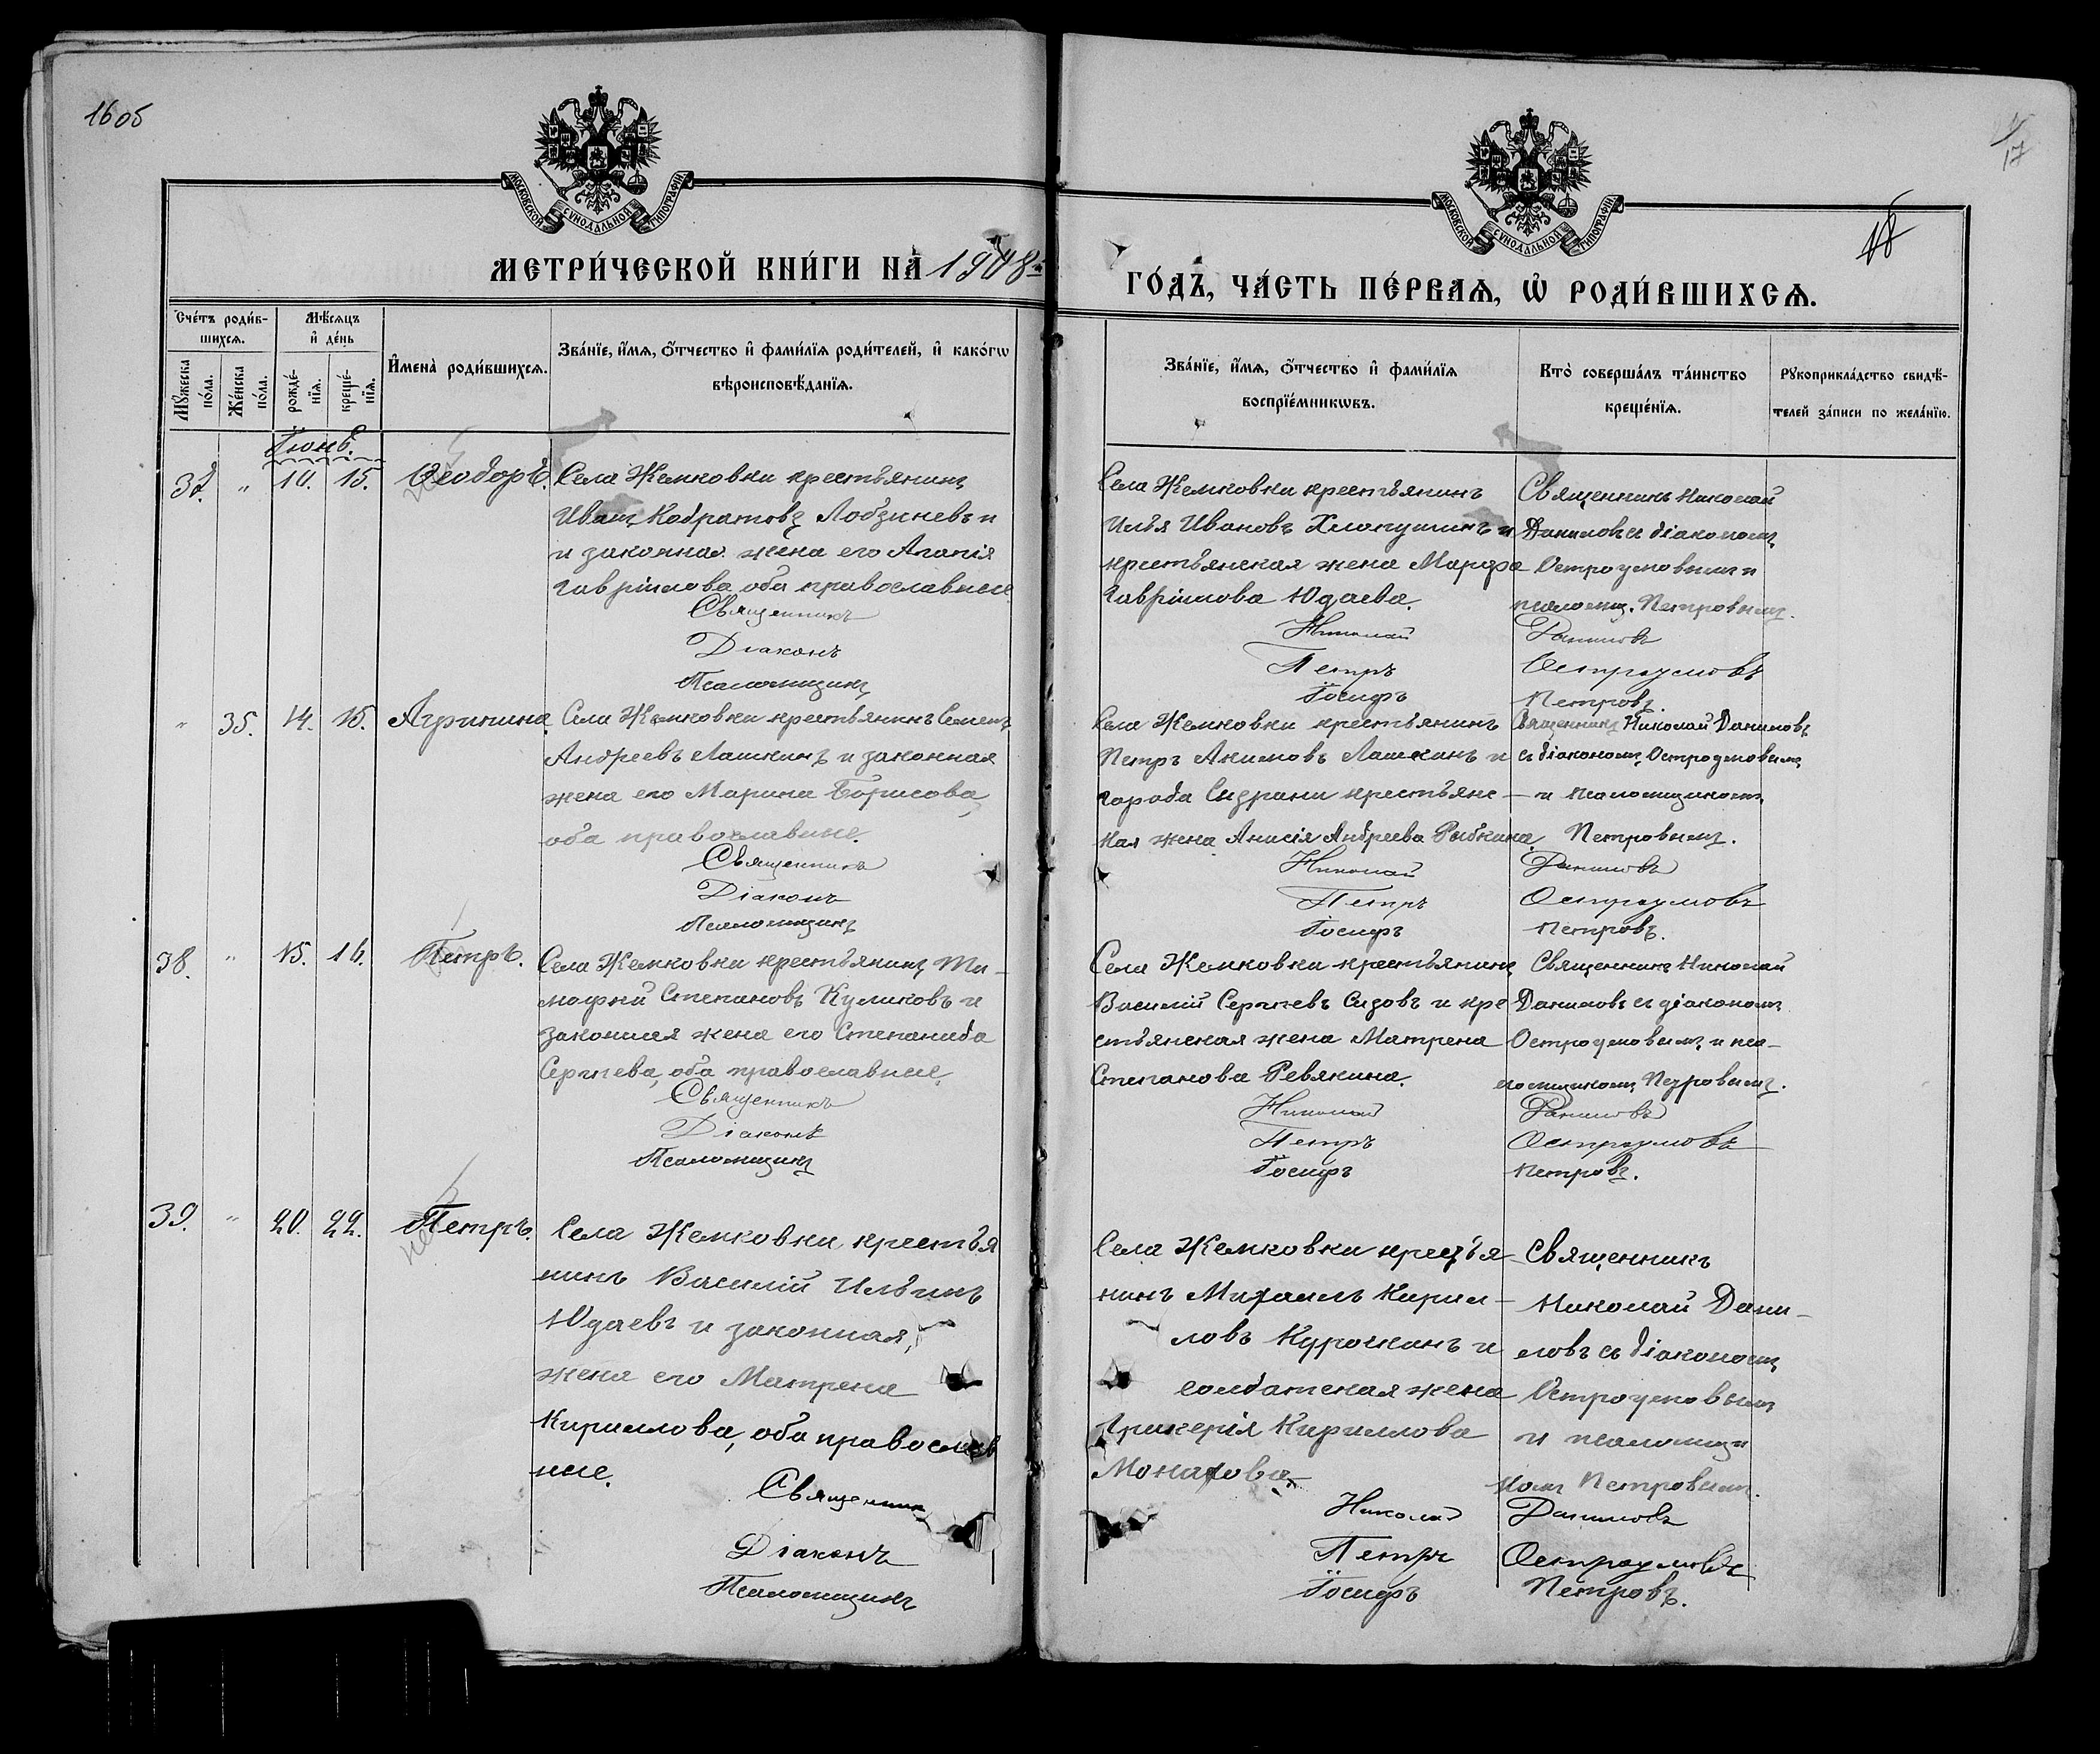 16 об
17
18
МОСКОВСКОЙ СѴНОДАЛЬНОЙ ТИПОГРАФІИ
МОСКОВСКОЙ СѴНОДАЛЬНОЙ ТИПОГРАФІИ
МЕТРИ́ЧЕСКОЙ КНИ́ГИ НА 1908
ГО́ДЪ, ЧА́СТЬ ПЕ́РВАѦ, Ѡ҆ РОДИ́ВШИХСѦ.
Сче́тъ роди́в-
шихсѧ.
Мꙋ́жеска
по́ла.
Же́нска
по́ла.
Мѣ́сѧцъ
и҆ де́нь
рожде́-
нїѧ.
креще́-
нїѧ.
И҆мена̀ роди́вшихсѧ.
Зва́нїе, и҆́мѧ, ѻ҆́тчество и҆ фами́лїѧ роди́телей, и҆ како́гѡ
вѣроисповѣ́данїѧ.
Зва́нїе, и҆́мѧ, ѻ҆́тчество и҆ фами́лїѧ
воспрїе́мникѡвъ.
Кто̀ соверша́лъ та́инство
креще́нїѧ.
Рꙋкоприкла́дство свидѣ́-
телей за́писи по жела́нїю.
Іюнь.
" 10. 15. Ѳеодоръ.
Села Жемковки крестьянинъ
Иванъ Кодратовъ Лобзиневъ и
и законная жена его Агапія
Гавріилова, оба православные.
Священникъ
Діаконъ
Псаломщикъ
Села Жемковки крестьянинъ
Илья Ивановъ Хлопушинъ и
крестьянская жена Марфа
Гавріилова Юдаева.
Николай
Петръ
Іосифъ
Священникъ Николай
Даниловъ съ діакономъ
Остроумовымъ и
псаломщ. Петровымъ.
Даниловъ
Остроумовъ
Петровъ.
" 35. 14. 15. Агрипина.
Села Жемковки крестьянинъ Семенъ
Андреевъ Лашкинъ и законная
жена его Марина Борисова,
оба православные.
Священникъ
Діаконъ
Псаломщикъ
Села Жемковки крестьянинъ
Петръ Акимовъ Лашкинъ и
города Сызрани крестьянс-
кая жена Анисія Андреева Рыбкина.
Николай
Петръ
Іосифъ
Священникъ Николай Даниловъ
съ діакономъ Остроумовымъ
и псаломщикомъ
Петровымъ.
Даниловъ
Остроумовъ
Петровъ.
38. " 15. 16. Петръ.
Села Жемковки крестьянинъ Ти-
мофей Степановъ Куликовъ и
законная жена его Степанида
Сергѣева, оба православные.
Священникъ
Діаконъ
Псаломщикъ
Села Жемковки крестьянинъ
Василій Сергѣевъ Сизовъ и кре
стьянская жена Матрена
Степанова Ревякина.
Николай
Петръ
Іосифъ
Священникъ Николай
Даниловъ съ діакономъ
Остроумовымъ и пса-
ломщикомъ Петровымъ.
Даниловъ
Остроумовъ
Петровъ.
39. " 20. 22. Петръ.
Села Жемковки крестья
нинъ Василій Ильинъ
Юдаевъ и законная,
жена его Матрена
Кириллова, оба православ
ные.
Священник
Діаконъ
Псаломщикъ
Села Жемковки крестья-
нинъ Михаилъ Кирил-
ловъ Курочкинъ и
солдатская жена
Гликерія Кириллова
Монахова
Николай
Петръ
Іосифъ
Священникъ
Николай Дани-
ловъ съ діакономъ
Остроумовымъ
и псаломщи
комъ Петровымъ.
Даниловъ
Остроумовъ
Петровъ.